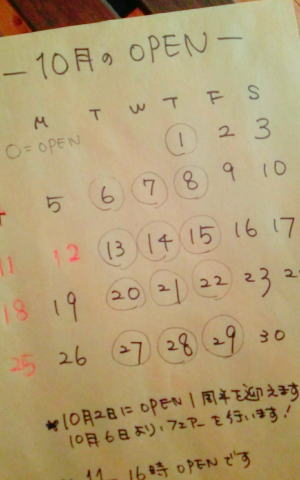 — 10月の OPEN —
M T W T F S
O = OPEN
1 2 3
5 6 7 8 9 10
11 12 13 14 15 16 17
18 19 20 21 22 23
25 26 27 28 29 30
*10月2日に OPEN 1周年を迎えます
10月6日より、フェアーを行います!
11-16時 OPENです